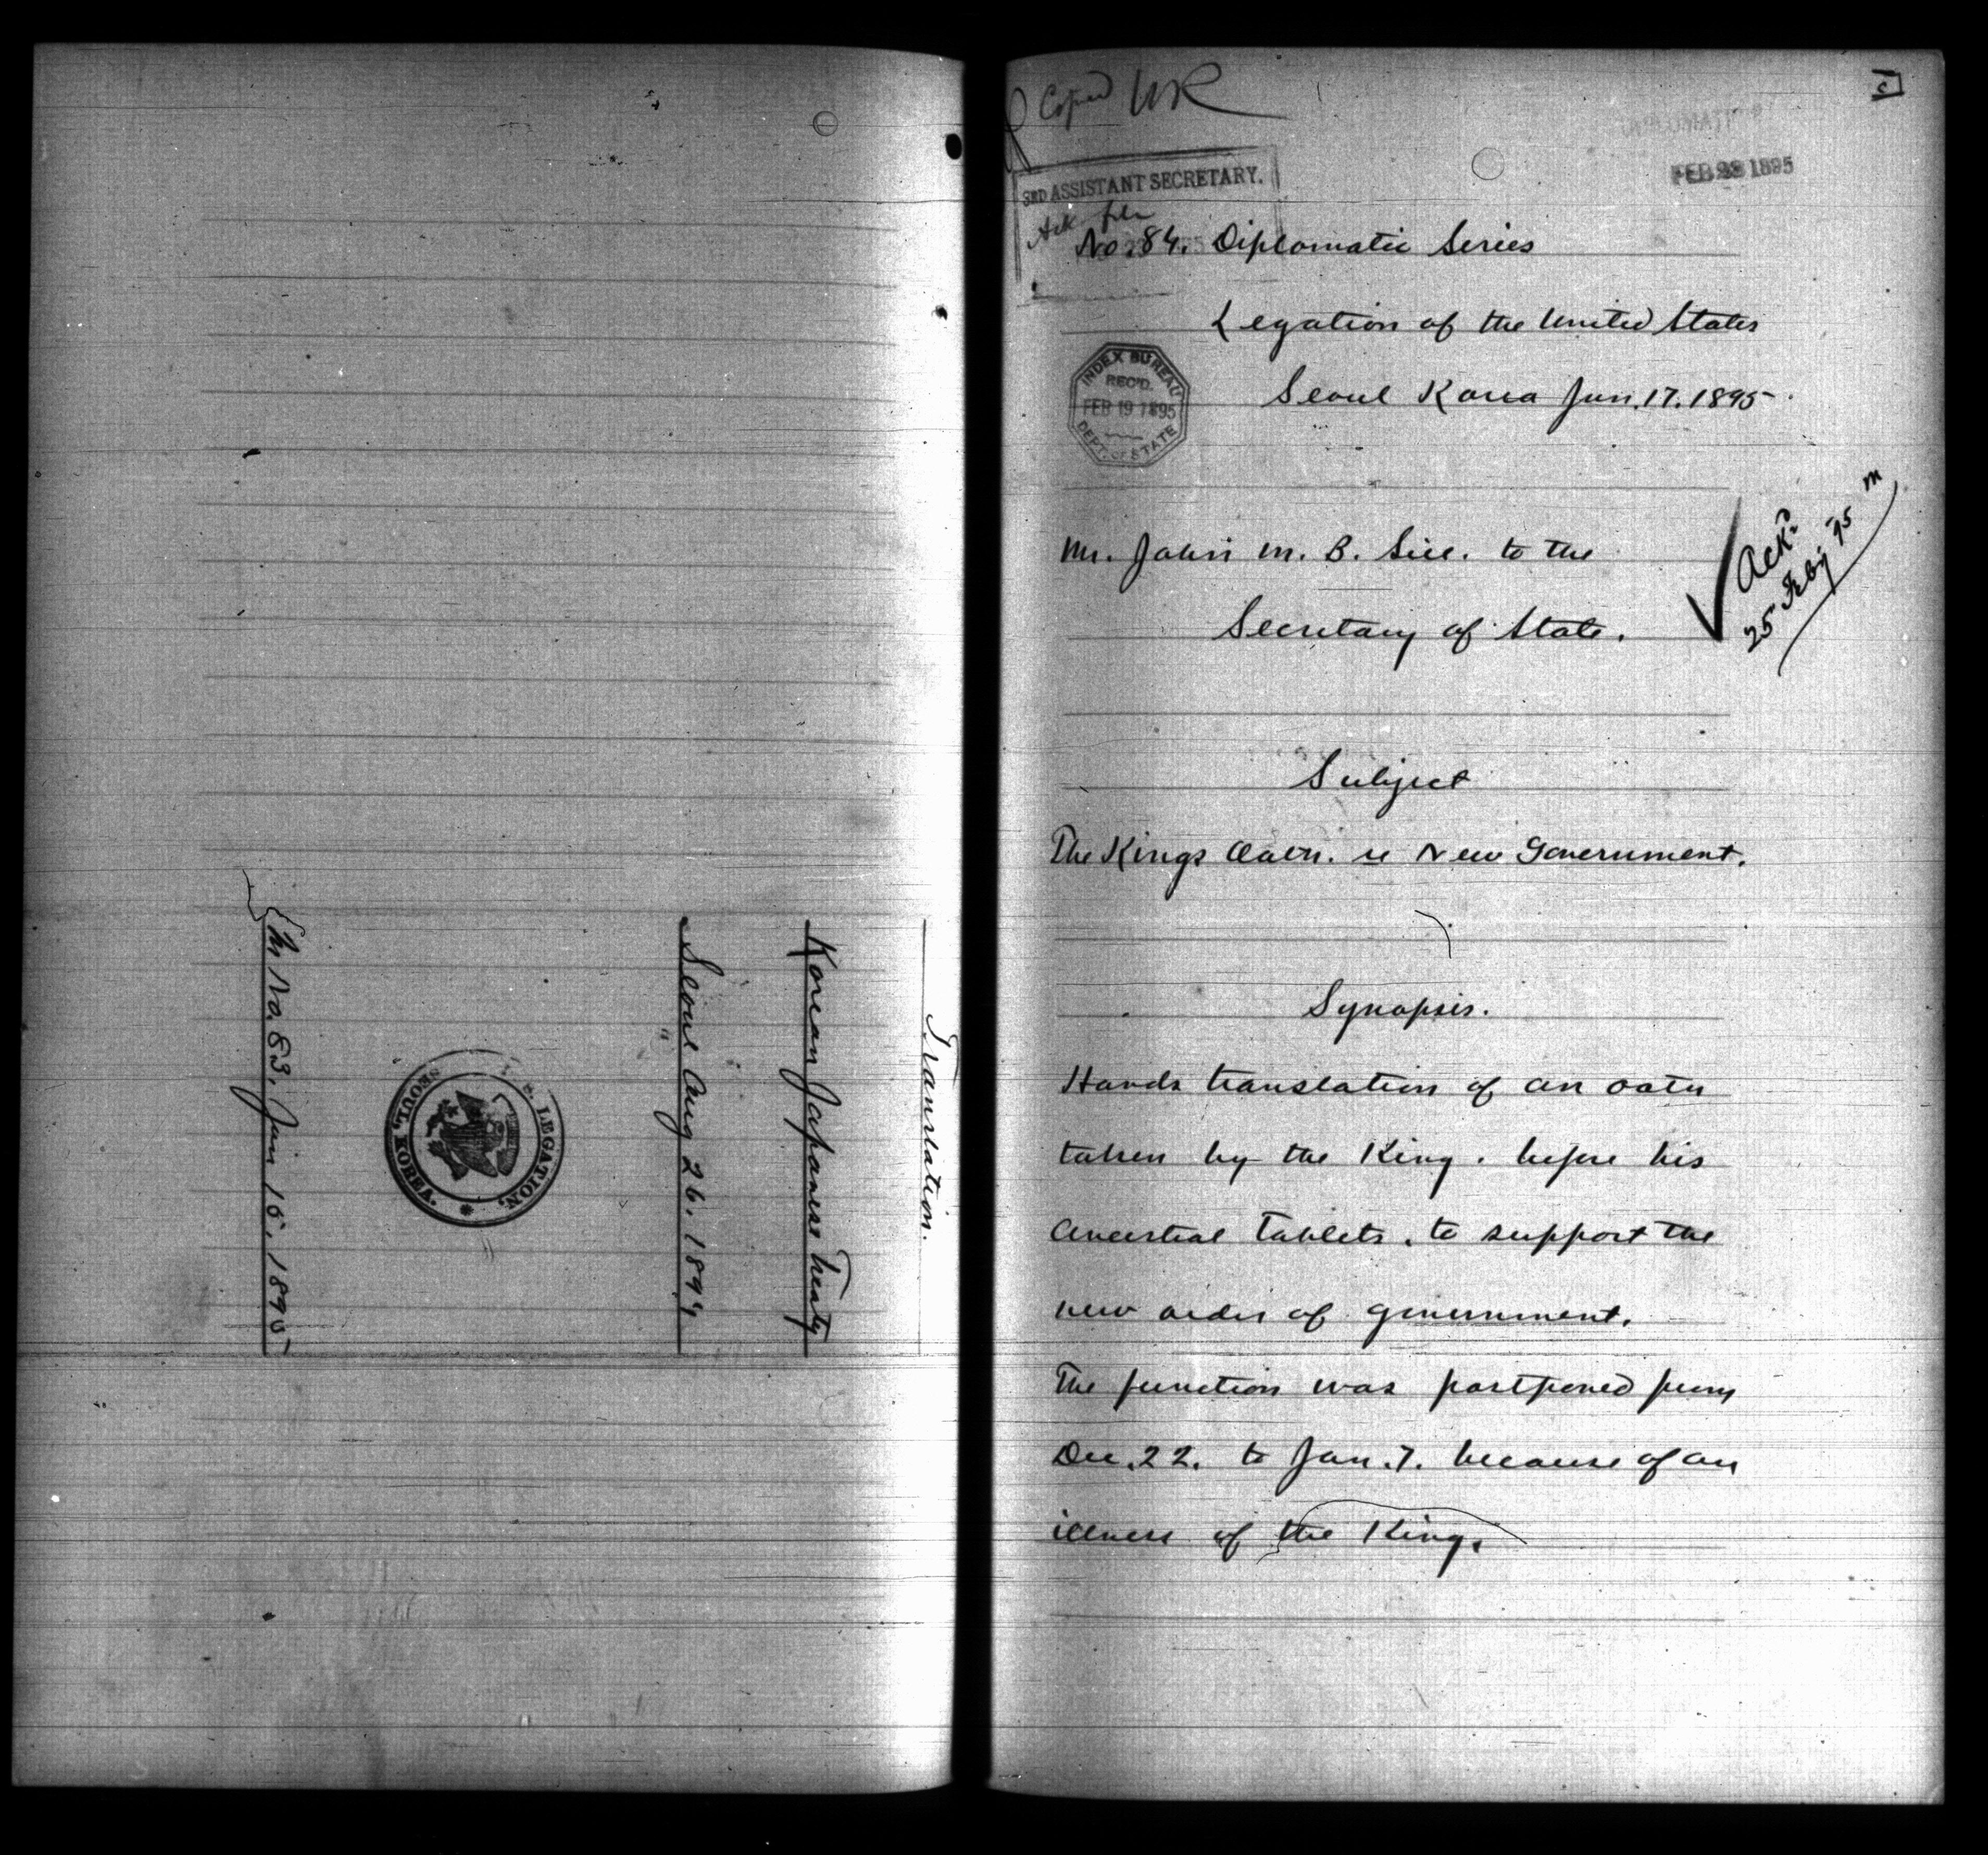 Translation.
Korean Japanese treaty
Seoul Aug 26. 1894
U.S. LEGATION,
SEOUL, KOREA.
In No. 83, Jan 15, 1895
Copied
FEB 1895
3RD ASSISTANT SECRETARY.
Ack
No. 84. Diplomatic Series
Legation of the United States
INDEX BUREAU
REC'D.
FEB 19 1895
DEPT. OF STATE
Seoul Korea Jan. 17. 1895
Mr. John M. B. Sill. to the
Secretary of State.
Ackd
25 Feby 95
Subject
The Kings Oath. re New Government.
Synopsis.
Hands translation of an oath
taken by the King. before his
Ancestral Tablets. to support the
new order of government.
The function was postponed from
Dec. 22. to Jan. 7. because of an
illness of the King.